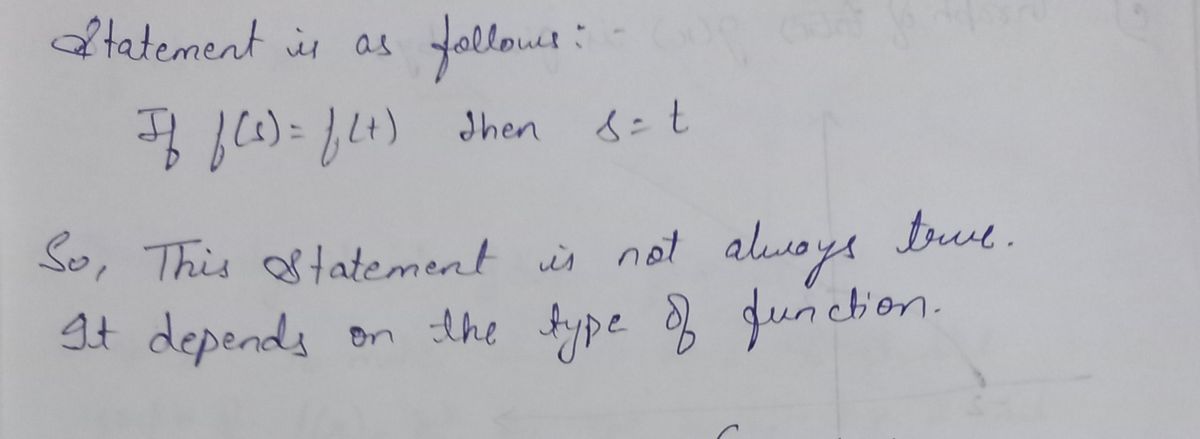 Statement is as follows :-
If f(s) = f(t) then s = t
So, This statement is not always true.
It depends on the type of function.